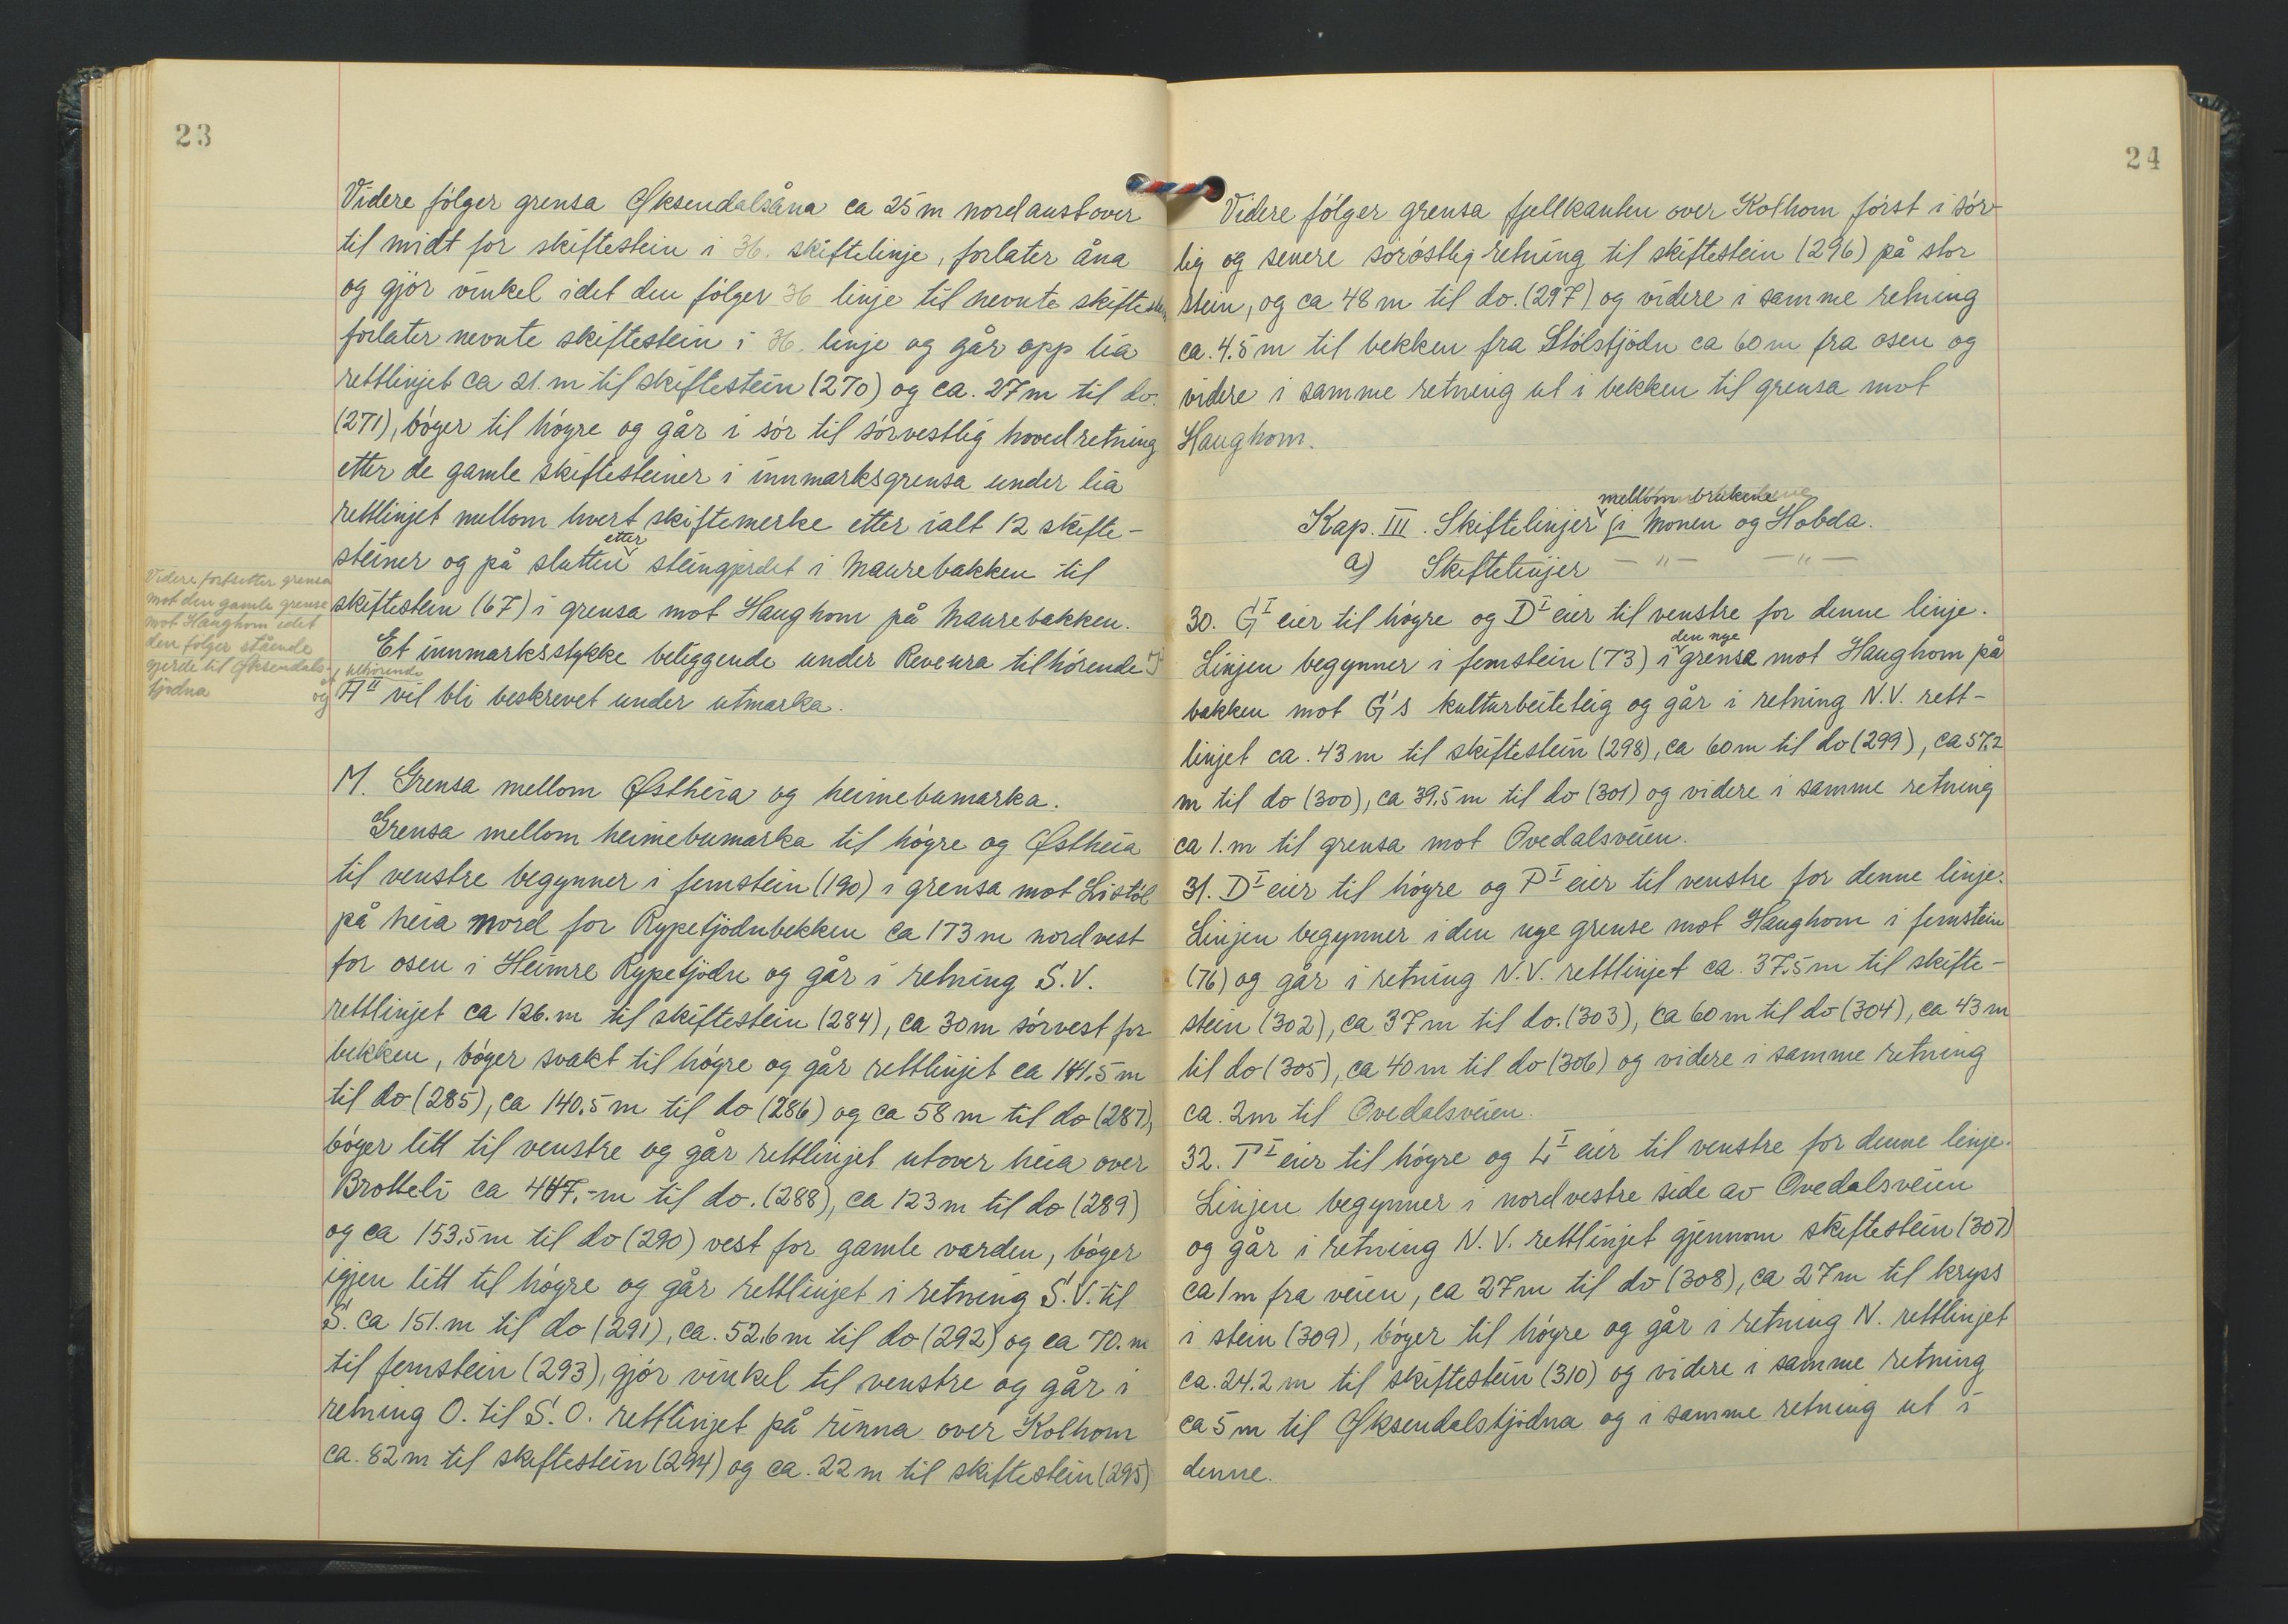 23
Videre følger grensa Øksendalsåna ca 25 m nordaustover
til midt for skiftestein i 36. skiftelinje, forlater åna
og gjør vinkel idet den følger 36 linje til nevnte skiftestein
forlater nevnte skiftestein i 36. linje og går opp lia
rettlinjet ca 21. m til skiftestein (270) og ca. 27 m til do.
(271), bøyer til høyre og går i sør til sørvestlig hovedretning
etter de gamle skiftesteiner i innmarksgrensa under lia
rettlinjet mellom hvert skiftemerke etter ialt 12 skifte-
steiner og på slutten etter steingjerdet i Maurebakken til
skiftestein (67) i grensa mot Haughom på Maurebakken.
Et innmarksstykke beliggende under Reveura tilhørende J
og A II vil bli beskrevet under utmarka.
Videre fortsetter grensa
mot den gamle grense
mot Haughom idet
den følger stående
gjerde til Øksendals-
tjødna
M. Grensa mellom Østheia og heimebumarka.
Grensa mellom heimebumarka til høyre og Østheia
til venstre begynner i femstein (190) i grensa mot Listøl
på heia nord for Rypetjødnbekken ca 173 m nordvest
for osen i Heimre Rypetjødn og går i retning S.V.
rettlinjet ca 126. m til skiftestein (284), ca 30 m sørvest for
bekken, bøyer svakt til høyre og går rettlinjet ca 141.5 m
til do (285), ca 140.5 m til do (286) og ca 58 m til do (287),
bøyer litt til venstre og går rettlinjet utover heia over
Brotteli ca 447.- m til do. (288), ca 123 m til do (289)
og ca 153.5 m til do (290) vest for gamle varden, bøyer
igjen litt til høyre og går rettlinjet i retning S.V. til
S. ca 151. m til do (291), ca. 52.6 m til do (292) og ca 70. m
til femstein (293), gjør vinkel til venstre og går i
retning O. til S.O. rettlinjet på rinna over Kolhom
ca. 82 m til skiftestein (294) og ca. 22 m til skiftestein (295)
24
Videre følger grensa fjellkanten over Kolhom først i sør-
lig og senere sørøstlig retning til skiftestein (296) på stor
stein, og ca 48 m til do. (297) og videre i samme retning
ca. 4.5 m til bekken fra Stølstjødn ca 60 m fra osen og
videre i samme retning ut i bekken til grensa mot
Haughom.
Kap. III. Skiftelinjer mellom brukene i Monen og Hobda.
a) Skiftelinjer — " — — " —
30. G I eier til høyre og D I eier til venstre for denne linje.
Linjen begynner i femstein (73) i den nye grensa mot Haughom på
bakken mot G's kulturbeiteteig og går i retning N.V. rett-
linjet ca. 43 m til skiftestein (298), ca 60 m til do (299), ca 57.2
m til do (300), ca 39.5 m til do (301) og videre i samme retning
ca 1. m til grensa mot Ovedalsveien.
31. D I eier til høyre og P I eier til venstre for denne linje.
Linjen begynner i den nye grense mot Haughom i femstein
(76) og går i retning N.V. rettlinjet ca. 37.5 m til skifte-
stein (302), ca 37 m til do. (303), ca 60 m til do (304), ca 43 m
til do (305), ca 40 m til do (306) og videre i samme retning
ca. 2 m til Ovedalsveien.
32. P I eier til høyre og L I eier til venstre for denne linje.
Linjen begynner i nordvestre side av Ovedalsveien
og går i retning N.V. rettlinjet gjennom skiftestein (307)
ca 1 m fra veien, ca 27 m til do (308), ca 27 m til kryss
i stein (309), bøyer til høyre og går i retning N. rettlinjet
ca. 24.2 m til skiftestein (310) og videre i samme retning
ca 5 m til Øksendalstjødna og i samme retning ut i
denne.